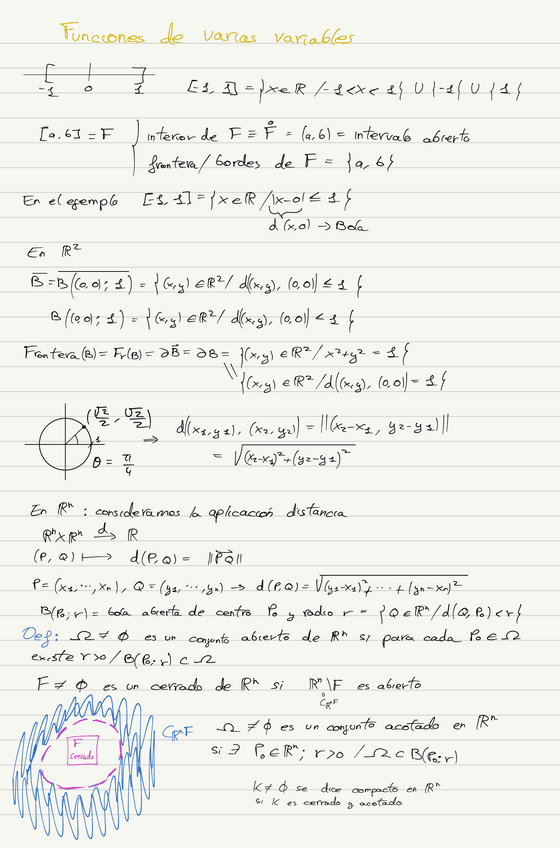 Funciones de varias variables
-1 0 1
[-1, 1] = {x ∈ ℝ / -1 < x < 1} ∪ {-1} ∪ {1}
[a, b] = F
interior de F ≡ F̊ = (a, b) = intervalo abierto
frontera/bordes de F = {a, b}
En el ejemplo [-1, 1] = {x ∈ ℝ / |x-0| ≤ 1}
d(x,0) → Bola
En ℝ²
B̅ = B̅((0,0); 1) = {(x,y) ∈ ℝ² / d((x,y), (0,0)) ≤ 1}
B((0,0); 1) = {(x,y) ∈ ℝ² / d((x,y), (0,0)) < 1}
Frontera(B) = Fr(B) = ∂B̅ = ∂B = {(x,y) ∈ ℝ² / x²+y² = 1}
\\ {(x,y) ∈ ℝ² / d((x,y), (0,0)) = 1}
(√2/2, √2/2)
1
θ = π/4
⇒ d((x1,y1), (x2,y2)) = ||(x2-x1, y2-y1)||
= √((x2-x1)²+(y2-y1)²)
En ℝⁿ : consideramos la aplicación distancia
ℝⁿ×ℝⁿ →d ℝ
(P, Q) ⟼ d(P,Q) = ||PQ||
P = (x1,…,xn), Q = (y1,…,yn) → d(P,Q) = √((y1-x1)²+…+(yn-xn)²)
B(P0; r) = bola abierta de centro P0 y radio r = {Q ∈ ℝⁿ / d(Q, P0) < r}
Def: Ω ≠ ∅ es un conjunto abierto de ℝⁿ si para cada P0 ∈ Ω
existe r>0 / B(P0; r) ⊂ Ω
F ≠ ∅ es un cerrado de ℝⁿ si ℝⁿ\F es abierto
"
Cℝⁿ F
F
cerrado
Cℝⁿ F
Ω ≠ ∅ es un conjunto acotado en ℝⁿ
si ∃ P0 ∈ ℝⁿ; r>0 / Ω ⊂ B(P0; r)
K ≠ ∅ se dice compacto en ℝⁿ
si K es cerrado y acotado